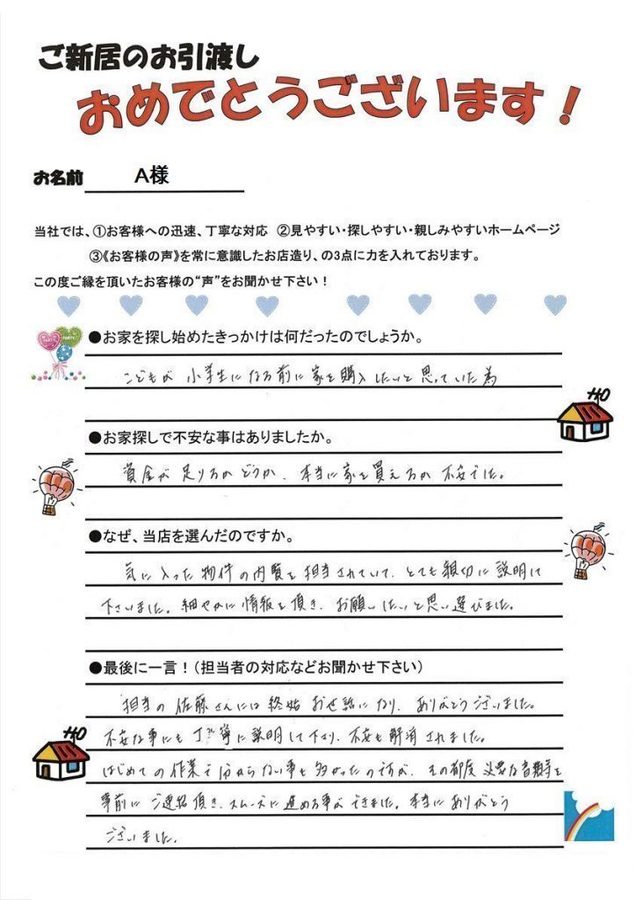 ご新居のお引渡し
おめでとうございます！
お名前 A様
当社では、①お客様への迅速、丁寧な対応 ②見やすい・探しやすい・親しみやすいホームページ
③《お客様の声》を常に意識したお店造り、の3点に力を入れております。
この度ご縁を頂いたお客様の“声”をお聞かせ下さい！
●お家を探し始めたきっかけは何だったのでしょうか。
こどもが小学生になる前に家を購入したいと思っていた為
●お家探しで不安な事はありましたか。
資金が足りるかどうか、本当に家を買えるか不安でした。
●なぜ、当店を選んだのですか。
気に入った物件の内覧を担当されていて、とても親切に説明して
下さいました。細やかに情報を頂き、お願いしたいと思い選びました。
●最後に一言！（担当者の対応などお聞かせ下さい）
担当の佐藤さんには終始お世話になり、ありがとうございました。
不安な事にも丁寧に説明して下さり、不安も解消されました。
はじめての作業で分からない事も多かったのですが、その都度必要な書類等を
事前にご連絡頂き、スムーズに進める事ができました。本当にありがとう
ございました。